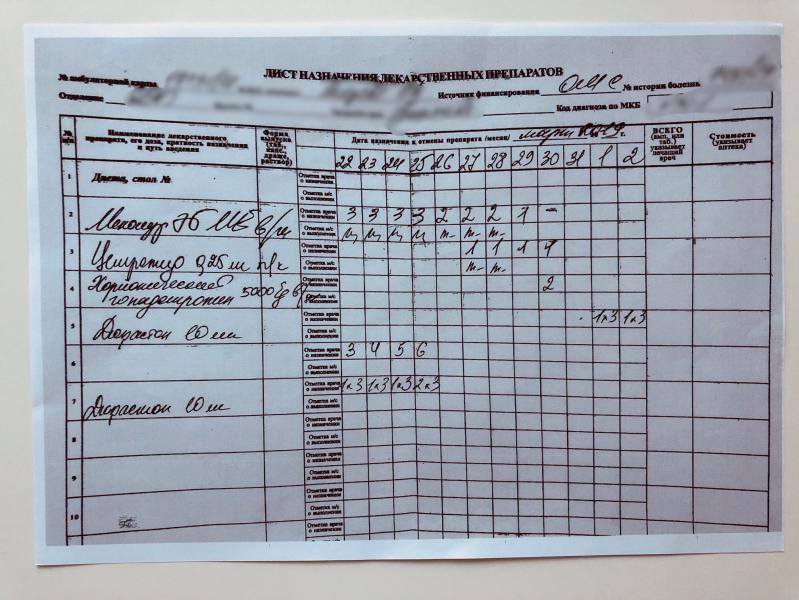 ЛИСТ НАЗНАЧЕНИЯ ЛЕКАРСТВЕННЫХ ПРЕПАРАТОВ
№ амбулаторной карты
Источник финансирования ОМС № истории болезнь
Отделение
Код диагноза по МКБ
№ п/п
Наименование лекарственного препарата, его доза, кратность назначения и путь введения
Форма выпуска (таб., капс., драже, раствор)
Дата назначения и отмены препарата /месяц/ марта г.
ВСЕГО (амп. или таб.) указывает лечащий врач
Стоимость (указывает аптека)
22 23 24 25 26 27 28 29 30 31 1 2
1 Диета, стол № Отметка врача о назначении
Отметка м/с о выполнении
2 Отметка врача о назначении 3 3 3 3 2 2 2 1 –
Менопур 75 МЕ в/м Отметка м/с о выполнении
3 Отметка врача о назначении 1 1 1 1
Цетротид 0,25 м п/к Отметка м/с о выполнении
4 Хорионический Отметка врача о назначении 2
гонадотропин 5000 Отметка м/с о выполнении
5 Отметка врача о назначении 1х3 1х3
Дюфастон 10 мг Отметка м/с о выполнении
6 Отметка врача о назначении 3 4 5 6
Отметка м/с о выполнении
7 Отметка врача о назначении 1х3 1х3 1х3 2х3
Дюфастон 10 мг Отметка м/с о выполнении
8 Отметка врача о назначении
Отметка м/с о выполнении
9 Отметка врача о назначении
Отметка м/с о выполнении
10 Отметка врача о назначении
Отметка м/с о выполнении
Отметка врача о назначении
Отметка м/с